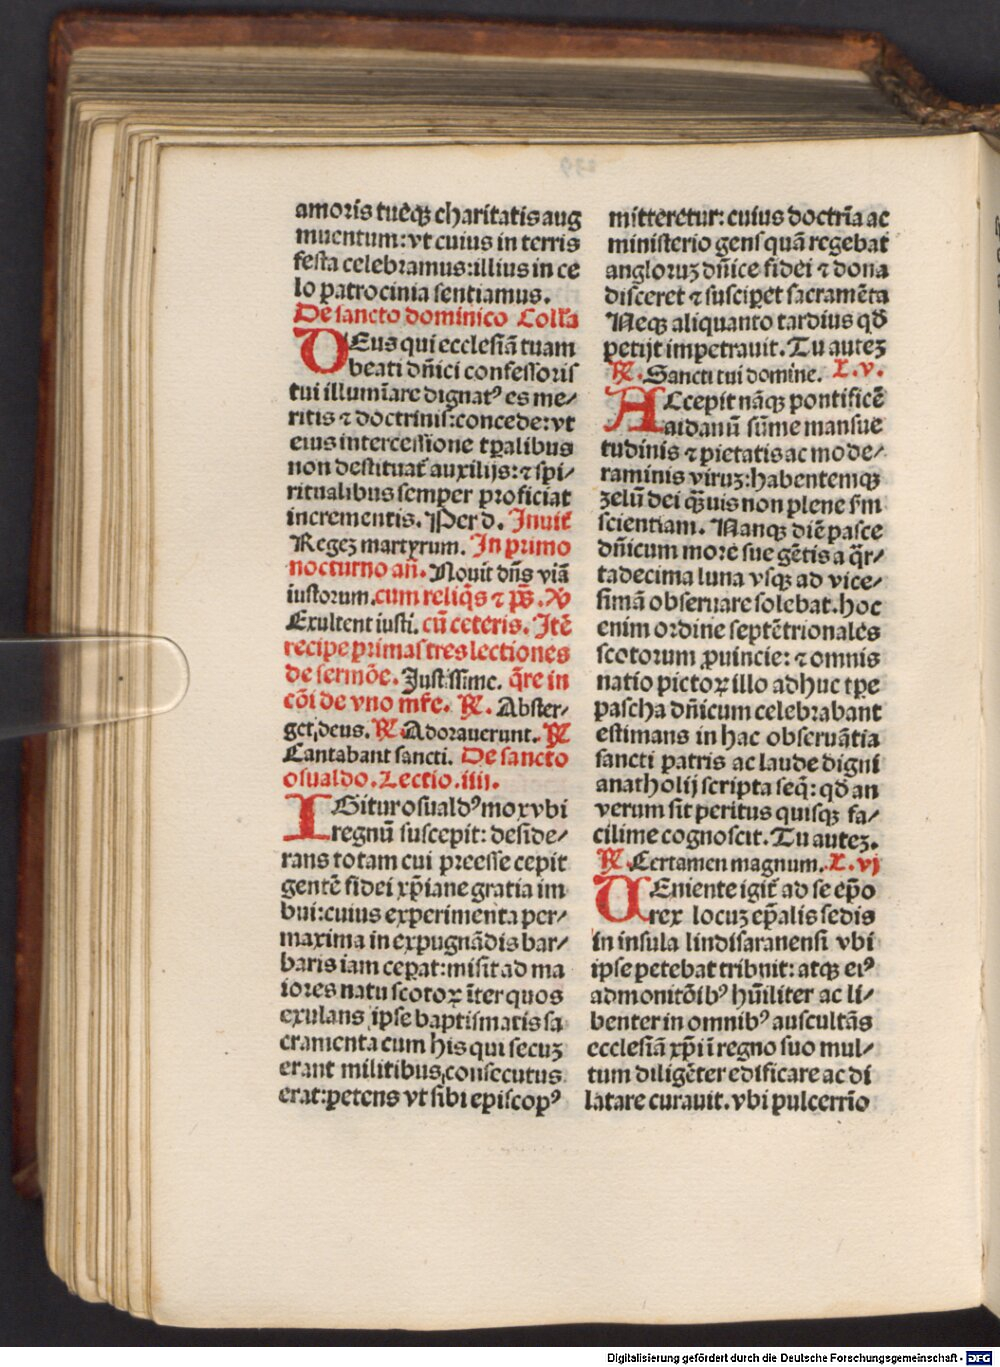 amoris tueqꝫ charitatis aug
mentum: vt cuius in terris
festa celebramus: illius in ce
lo patrocinia sentiamus.
De sancto dominico Coll̄a
DEus qui ecclesiā tuam
beati dn̄ici confessoris
tui illumīare dignatꝰ es me⸗
ritis ⁊ doctrinis: concede: vt
eius intercessione tꝑalibus
non destituat̄ auxilijs: ⁊ spi⸗
ritualibus semper proficiat
incrementis. Per d. Inuit̄
Regeꝫ martyrum. In primo
nocturno an̄. Nouit dn̄s viā
iustorum. cum reliq̄s ⁊ ps̄. ꝟ
Exultent iusti. cū ceteris. Itē
recipe primas tres lectiones
de sermōe. Justissime. q̄re in
cōi de vno mr̄e. ℟. Abster⸗
get deus. ℟. Adorauerunt. ℟
Cantabant sancti. De sancto
osualdo. Lectio .iiii.
IGitur osualdꝰ mox vbi
regnū suscepit: deside⸗
rans totam cui preesse cepit
gentē fidei xp̄iane gratia im
bui: cuius experimenta per⸗
maxima in expugnādis bar⸗
baris iam ceperat: misit ad ma
iores natu scotoꝝ īter quos
exulans ipse baptismatis sa
cramenta cum his qui secuꝫ
erant militibus, consecutus
erat: petens vt sibi episcopꝰ
mitteretur: cuius doctrīa ac
ministerio gens quā regebat
angloruꝫ dn̄ice fidei ⁊ dona
disceret ⁊ susciperet sacramēta
Neqꝫ aliquanto tardius qd̄
petijt impetrauit. Tu auteꝫ
℟. Sancti tui domine. L. v.
ACcepit nāqꝫ pontificē
aidanū sūme mansue
tudinis ⁊ pietatis ac mode⸗
raminis viruꝫ: habentemqꝫ
zelū dei q̄uis non plene sm̄
scientiam. Nanqꝫ diē pasce
dn̄icum more sue gētis a q̄r⸗
tadecima luna vsqꝫ ad vice⸗
simā obseruare solebat. hoc
enim ordine septētrionales
scotorum ꝓuincie: ⁊ omnis
natio pictoꝝ illo adhuc tꝑe
pascha dn̄icum celebrabant
estimans in hac obseruātia
sancti patris ac laude digni
anatholij scripta seq̄: qd̄ an
verum sit peritus quisqꝫ fa⸗
cilime cognoscit. Tu auteꝫ.
℟. Certamen magnum. L. vj
UEniente igit̄ ad se ep̄o
rex locuꝫ ep̄alis sedis
in insula lindisaranensi vbi
ipse petebat tribuit: atqꝫ eiꝰ
admonitōibꝰ hūiliter ac li⸗
benter in omnibꝰ auscultās
ecclesiā xp̄i ī regno suo mul⸗
tum diligēter edificare ac di
latare curauit. vbi pulcerrīo
Digitalisierung gefördert durch die Deutsche Forschungsgemeinschaft - DFG